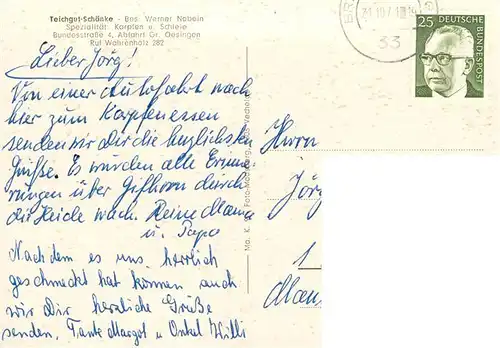 Teichgut-Schänke - Bes. Werner Nabein
Spezialität: Karpfen u. Schleie
Bundesstraße 4, Abfahrt Gr. Oesingen
Ruf Wahrenholz 282
Lieber Jörg!
Von einer Autofahrt nach
hier zum Karpfenessen
senden wir Dir die herzlichsten
Grüße. Es wurden alle Erinne-
rungen über Gifhorn durch
die Heide wach. Deine Mama
u. Papa
Nachdem es uns herrlich
geschmeckt hat können auch
wir Dir herzliche Grüße
senden. Tante Margot u Onkel Willi
33
25 DEUTSCHE
BUNDESPOST
Herrn
Jörg
1